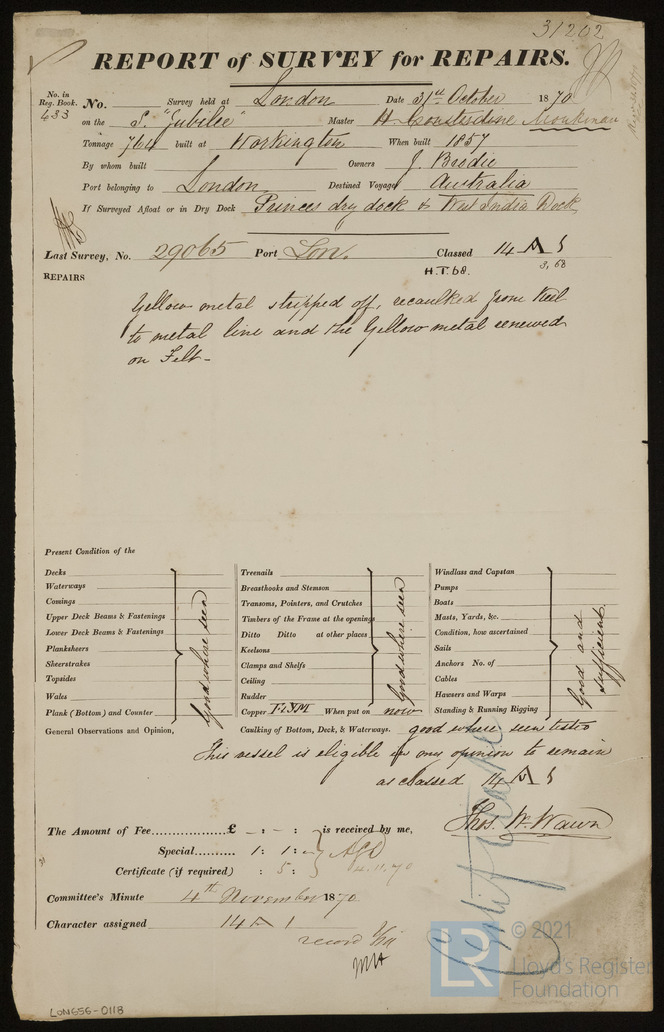 31202
REPORT of SURVEY for REPAIRS.
No. in Reg. Book. No. Survey held at London Date 31st October 1870
433 on the S. "Jubilee" Master H. Monkman
Tonnage 764 built at Workington When built 1857
By whom built Owners J. Brodie
Port belonging to London Destined Voyage Australia
If Surveyed Afloat or in Dry Dock Princes dry dock & West India Dock
Last Survey, No. 29065 Port Lon. Classed 14 A 1
H.T. 68. 3, 68
REPAIRS
Yellow metal stripped off, recaulked from Keel
to metal line and the Yellow metal renewed
on Felt-
Present Condition of the
Decks
Waterways
Comings
Upper Deck Beams & Fastenings
Lower Deck Beams & Fastenings
Planksheers
Sheerstrakes
Topsides
Wales
Plank (Bottom) and Counter
Good where seen
Treenails
Breasthooks and Stemson
Transoms, Pointers, and Crutches
Timbers of the Frame at the openings
Ditto Ditto at other places
Keelsons
Clamps and Shelfs
Ceiling
Rudder
Good where seen
Copper F&YM When put on now
Windlass and Capstan
Pumps
Boats
Masts, Yards, &c.
Condition, how ascertained
Sails
Anchors No. of
Cables
Hawsers and Warps
Standing & Running Rigging
Good and
sufficient
General Observations and Opinion, Caulking of Bottom, Deck, & Waterways. good where seen tested
This vessel is eligible in my opinion to remain
as classed 14 A 1
The Amount of Fee £ - : - : is received by me,
Thos. W. Wawn
Special 1 : 1 : -
Certificate (if required) : 5 :
4.11.70
Committee's Minute 4th November 1870
Character assigned 14 A 1
record
LON656-0118
LR
© 2021
Lloyd's Register
Foundation